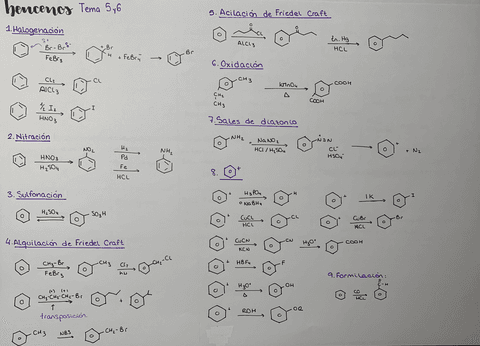 bencenos Tema 5 y 6
1. Halogenación
δ+ δ-
Br-Br
FeBr3
Br
H
+ FeBr4-
Br
Cl2
AlCl3
Cl
I2
HNO3
I
2. Nitración
HNO3
H2SO4
NO2
H2
Pd
Fe
HCL
NH2
3. Sulfonación
H2SO4
SO3H
4. Alquilación de Friedel Craft
CH3-Br
FeBr3
CH3
Cl2
hν
CH2-CL
CH3-CH2-CH2-Br
+
transposición
CH3
NBS
CH2-Br
5. Acilación de Friedel Craft
O
Cl
AlCl3
O
Zn, Hg
HCL
6. Oxidación
CH3
CH2
CH3
KMnO4
Δ
COOH
COOH
7. Sales de diazonio
NH2
NaNO2
HCl/H2SO4
N≡N
CL-
HSO4-
+
+ N2
8. +
+
H3PO2
o NaBH4
H
+
IK
I
+
CuCL
HCL
CL
+
CuBr
HCL
Br
+
CuCN
KCN
CN
H3O+
COOH
+
HBF4
F
+
H3O+
Δ
OH
+
ROH
OR
9. Formilación:
CO
HCL
O
C-H